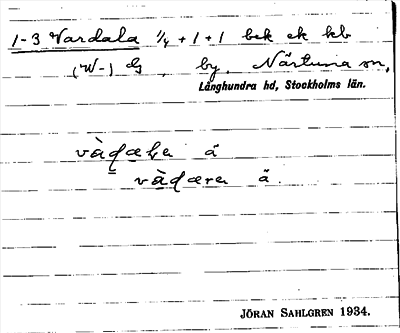 1-3 Vardala ¼ + 1 + 1 bek ek kb
(W-) dG, by, Närtuna sn,
Långhundra hd, Stockholms län.
vàɖaɽa ä
vàɖæra ä.
JÖRAN SAHLGREN 1934.